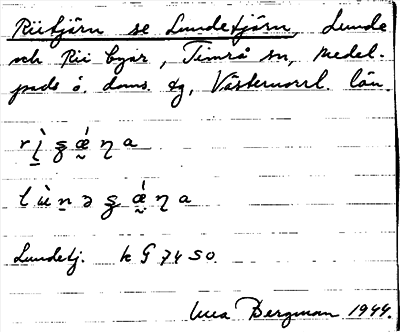 Riitjärn se Lundetjärn, Lunde
och Rii byar, Timrå sn, Medel-
pads ö. doms. tg, Västernorrl. län.
r ì̱ ʂ ǽ̬ ɳ a
l ù n̠ ə ʂ ǽ̬ ɳ a
Lundetj. k G 74 SO
Bergman 1944.